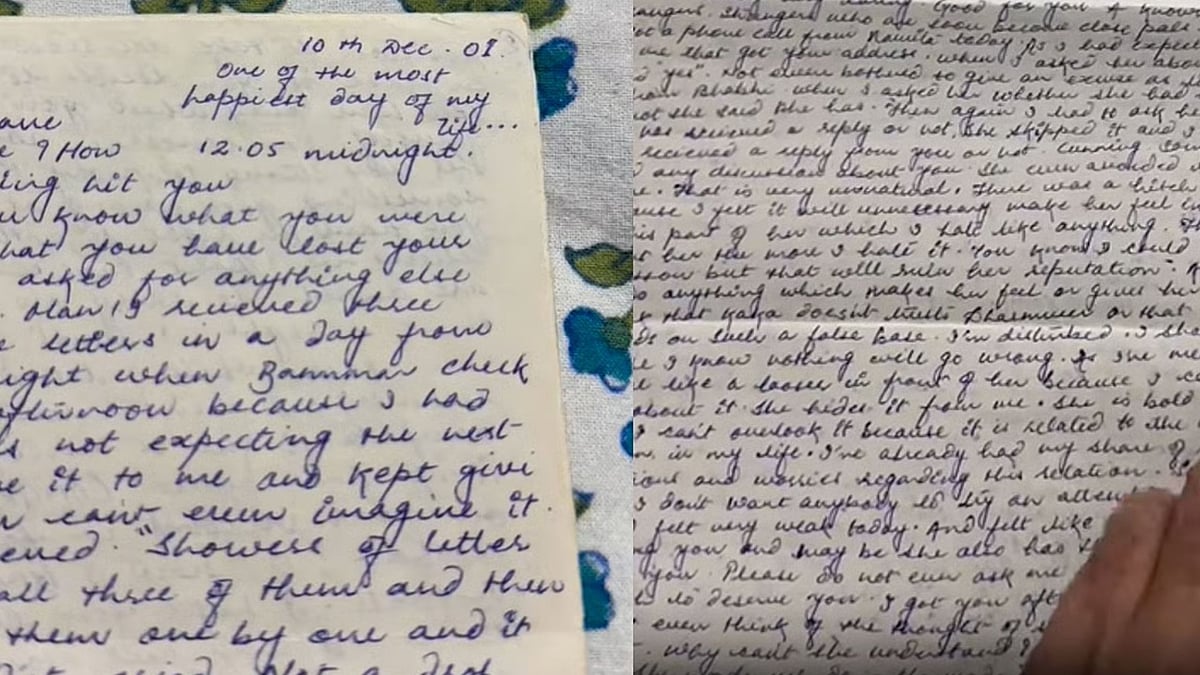 10th Dec. 01.
One of the most
happiest day of my
life...
12.05 midnight.
? How
ing hit you
know what you were
hat you have lost your
asked for anything else
Man I recieved three
letters in a day from
ight when Bamman check
afternoon because I had
s not expecting the next
e it to me and kept givi
n can't even imagine it.
ened. "Showers of letter
all three of them and then
them one by one and it
Not a
Good for you I know
angers. Strangers who are soon become close pals
a phone call from Namita today. As I had expec
me that got your address. When I asked her abou
"yes". Not even bothered to give an excuse as
Bhabhi. When I asked her whether she had
not she said she has. Then again I had to ask h
has recieved a reply or not, she skipped it and I
recieved a reply from you or not. Cunning
any discussion about you. She even avoided
e. That is very unnatural. There was a hitch
ause I felt it will unnecessary make her feel
is part of her which I hate like anything.
her the more I hate it. You know I could
know but that will ruin her reputation.
o anything which makes her feel or gives her
that Kaka doesn't trusts Dharmveer or that
on such a false base. I'm disturbed. I sho
e I know nothing will go wrong.
like a looser in front of her because I
about it. She hides it from me. She is bold
I can't overlook it because it is related to the
in my life. I've already had my share of
ions and worries regarding this relation.
I don't want anybody to try an attem
felt very weak today. And felt like
ng you and may be she also has
you. Please do not even ask me
to deserve you. I got you aft
even think of the thought of
Why can't she understand?